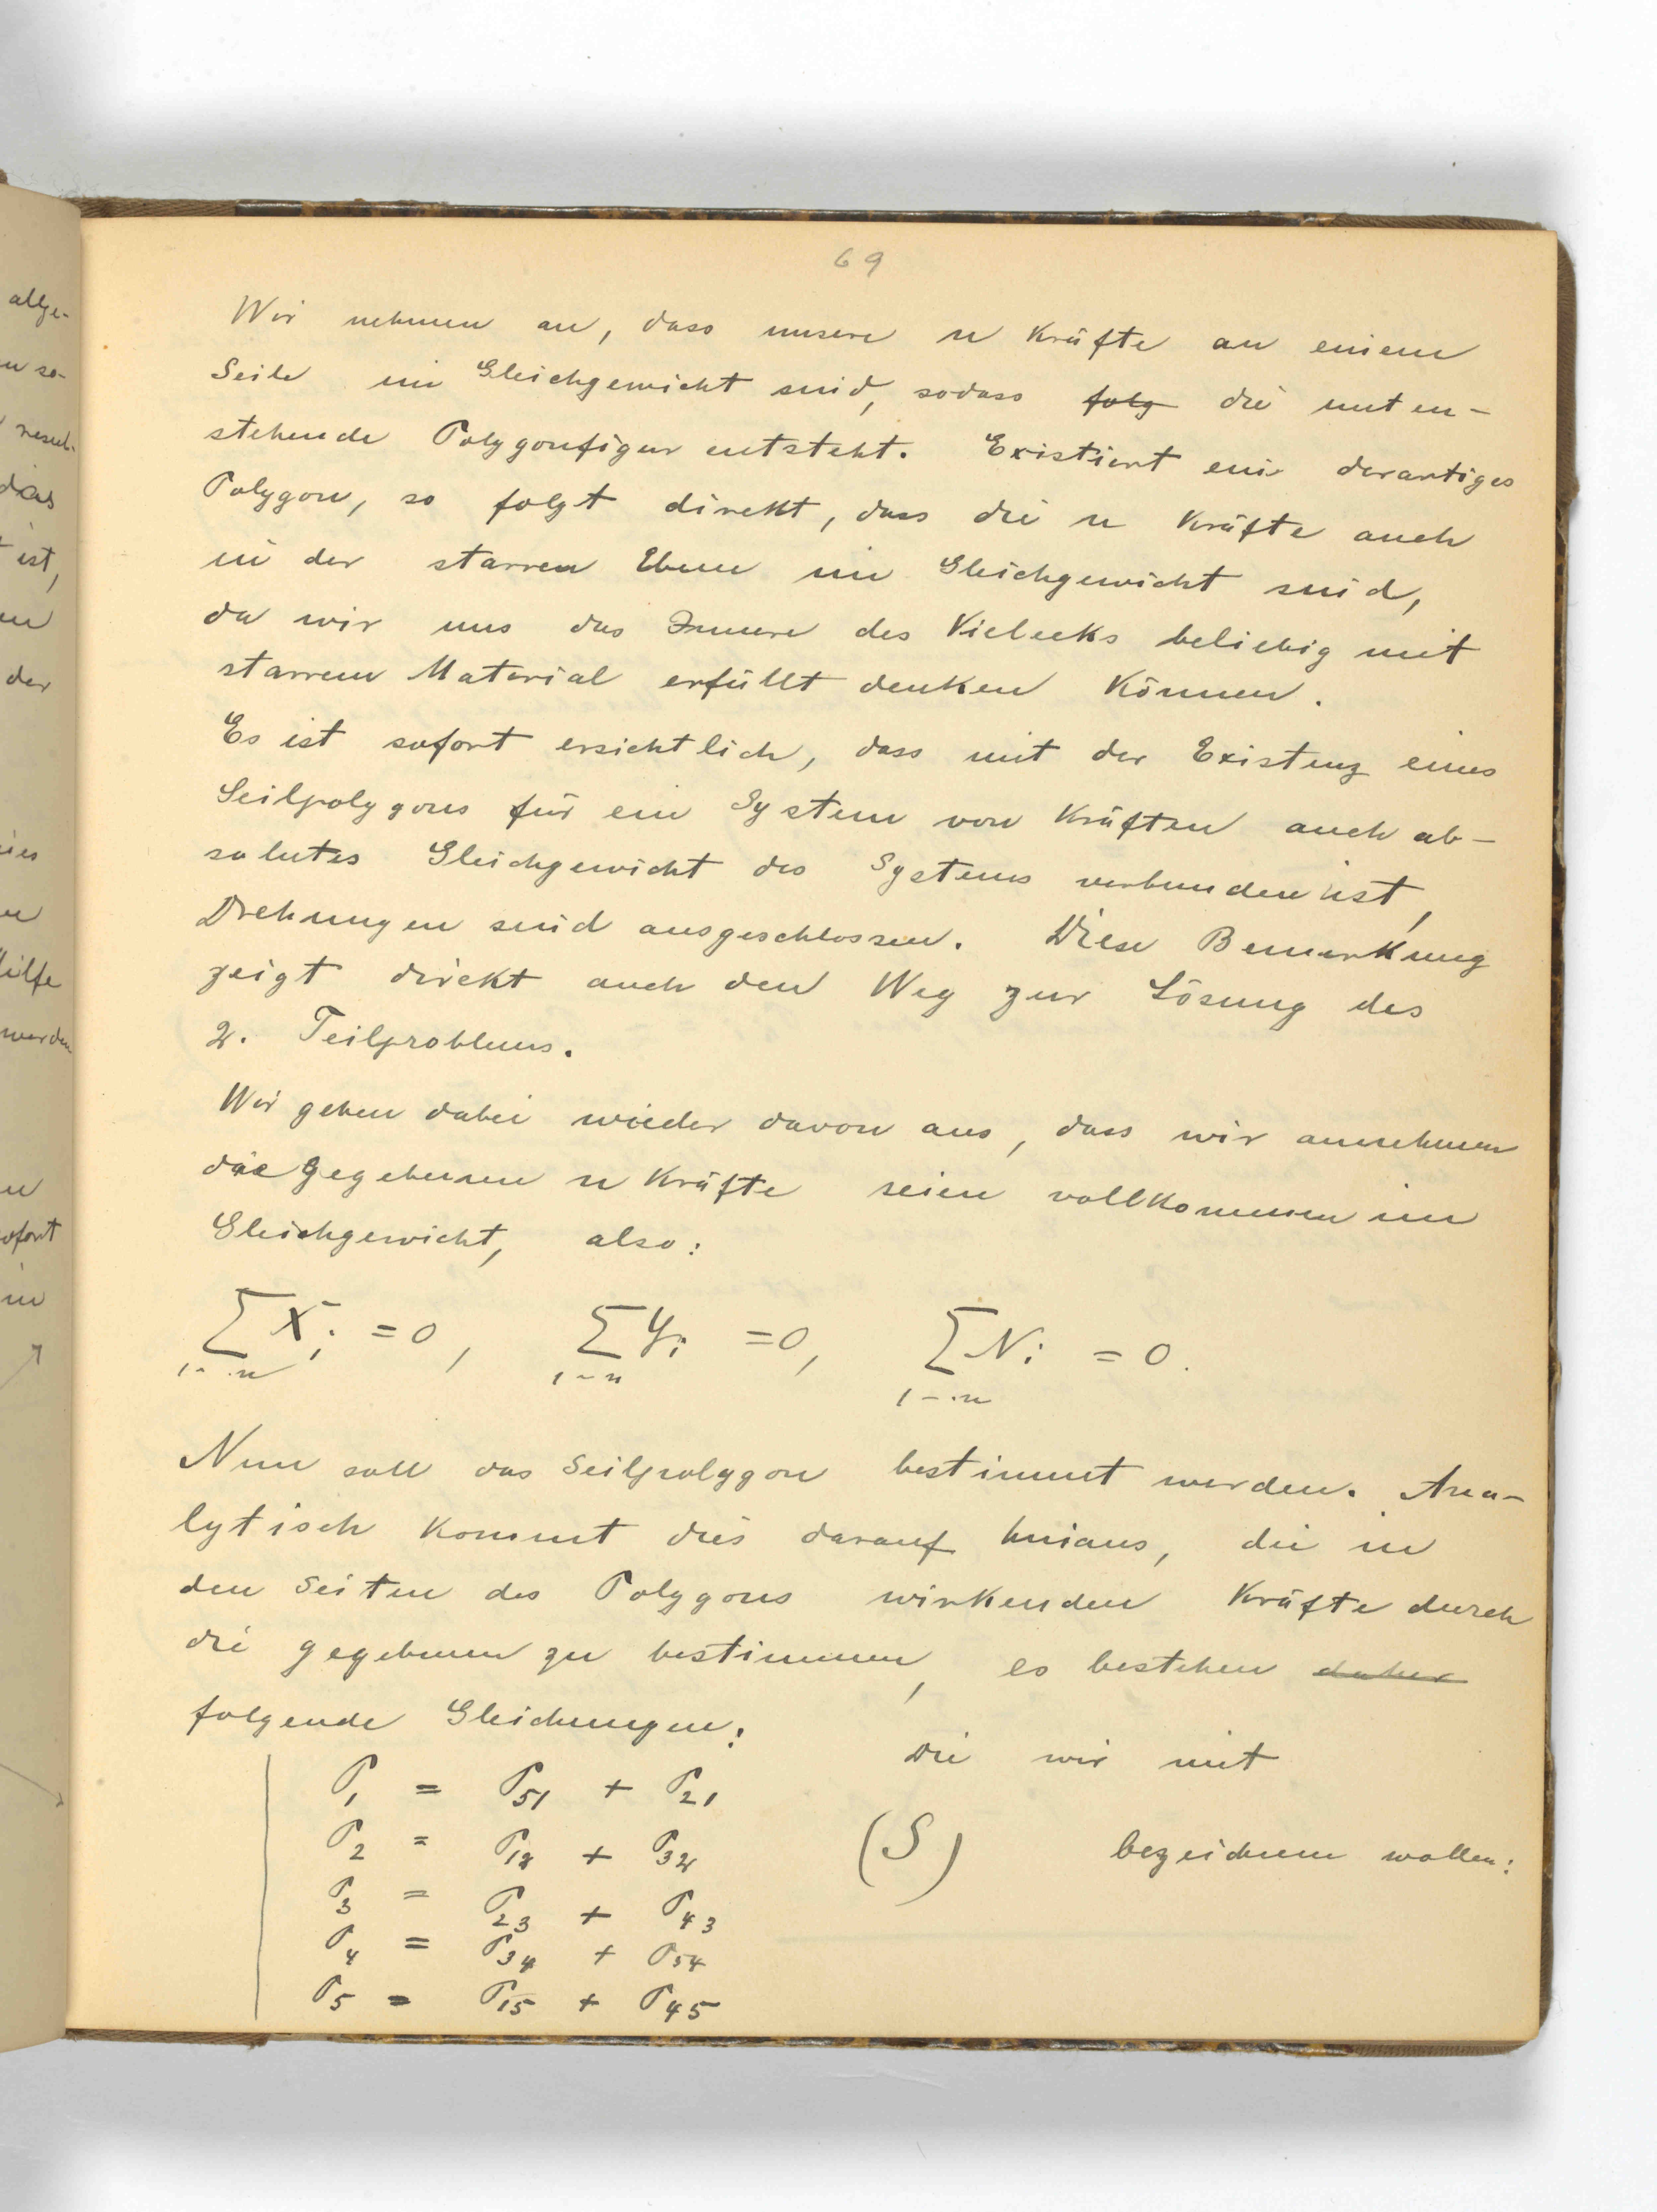 69
Wir nehmen an, dass unsere n Kräfte an einem
Seile im Gleichgewicht sind, sodass folg die unten-
stehende Polygonfigur entsteht. Existiert ein derartiges
Polygon, so folgt direkt, dass die n Kräfte auch
in der starren Ebene im Gleichgewicht sind,
da wir uns das Innere des Vielecks beliebig mit
starrem Material erfüllt denken können.
Es ist sofort ersichtlich, dass mit der Existenz eines
Seilpolygons für ein System von Kräften auch ab-
solutes Gleichgewicht des Systems verbunden ist,
Drehungen sind ausgeschlossen. Diese Bemerkung
zeigt direkt auch den Weg zur Lösung des
2. Teilproblems.
Wir gehen dabei wieder davon aus, dass wir annehmen
die gegebenen n Kräfte seien vollkommen im
Gleichgewicht, also:
∑ Xi = 0, ∑ Yi = 0, ∑ Ni = 0.
1-·n 1-n 1-·n
Nun soll das Seilpolygon bestimmt werden. Ana-
lytisch kommt dies darauf hinaus, die in
den Seiten des Polygons wirkenden Kräfte durch
die gegebenen zu bestimmen, es bestehen daher
folgende Gleichungen:
die wir mit
P1 = P51 + P21
P2 = P12 + P32
(S) bezeichnen wollen:
P3 = P23 + P43
P4 = P34 + P54
P5 = P15 + P45
allge-
n so-
das
ist,
der
Hilfe
werden
sofort
in